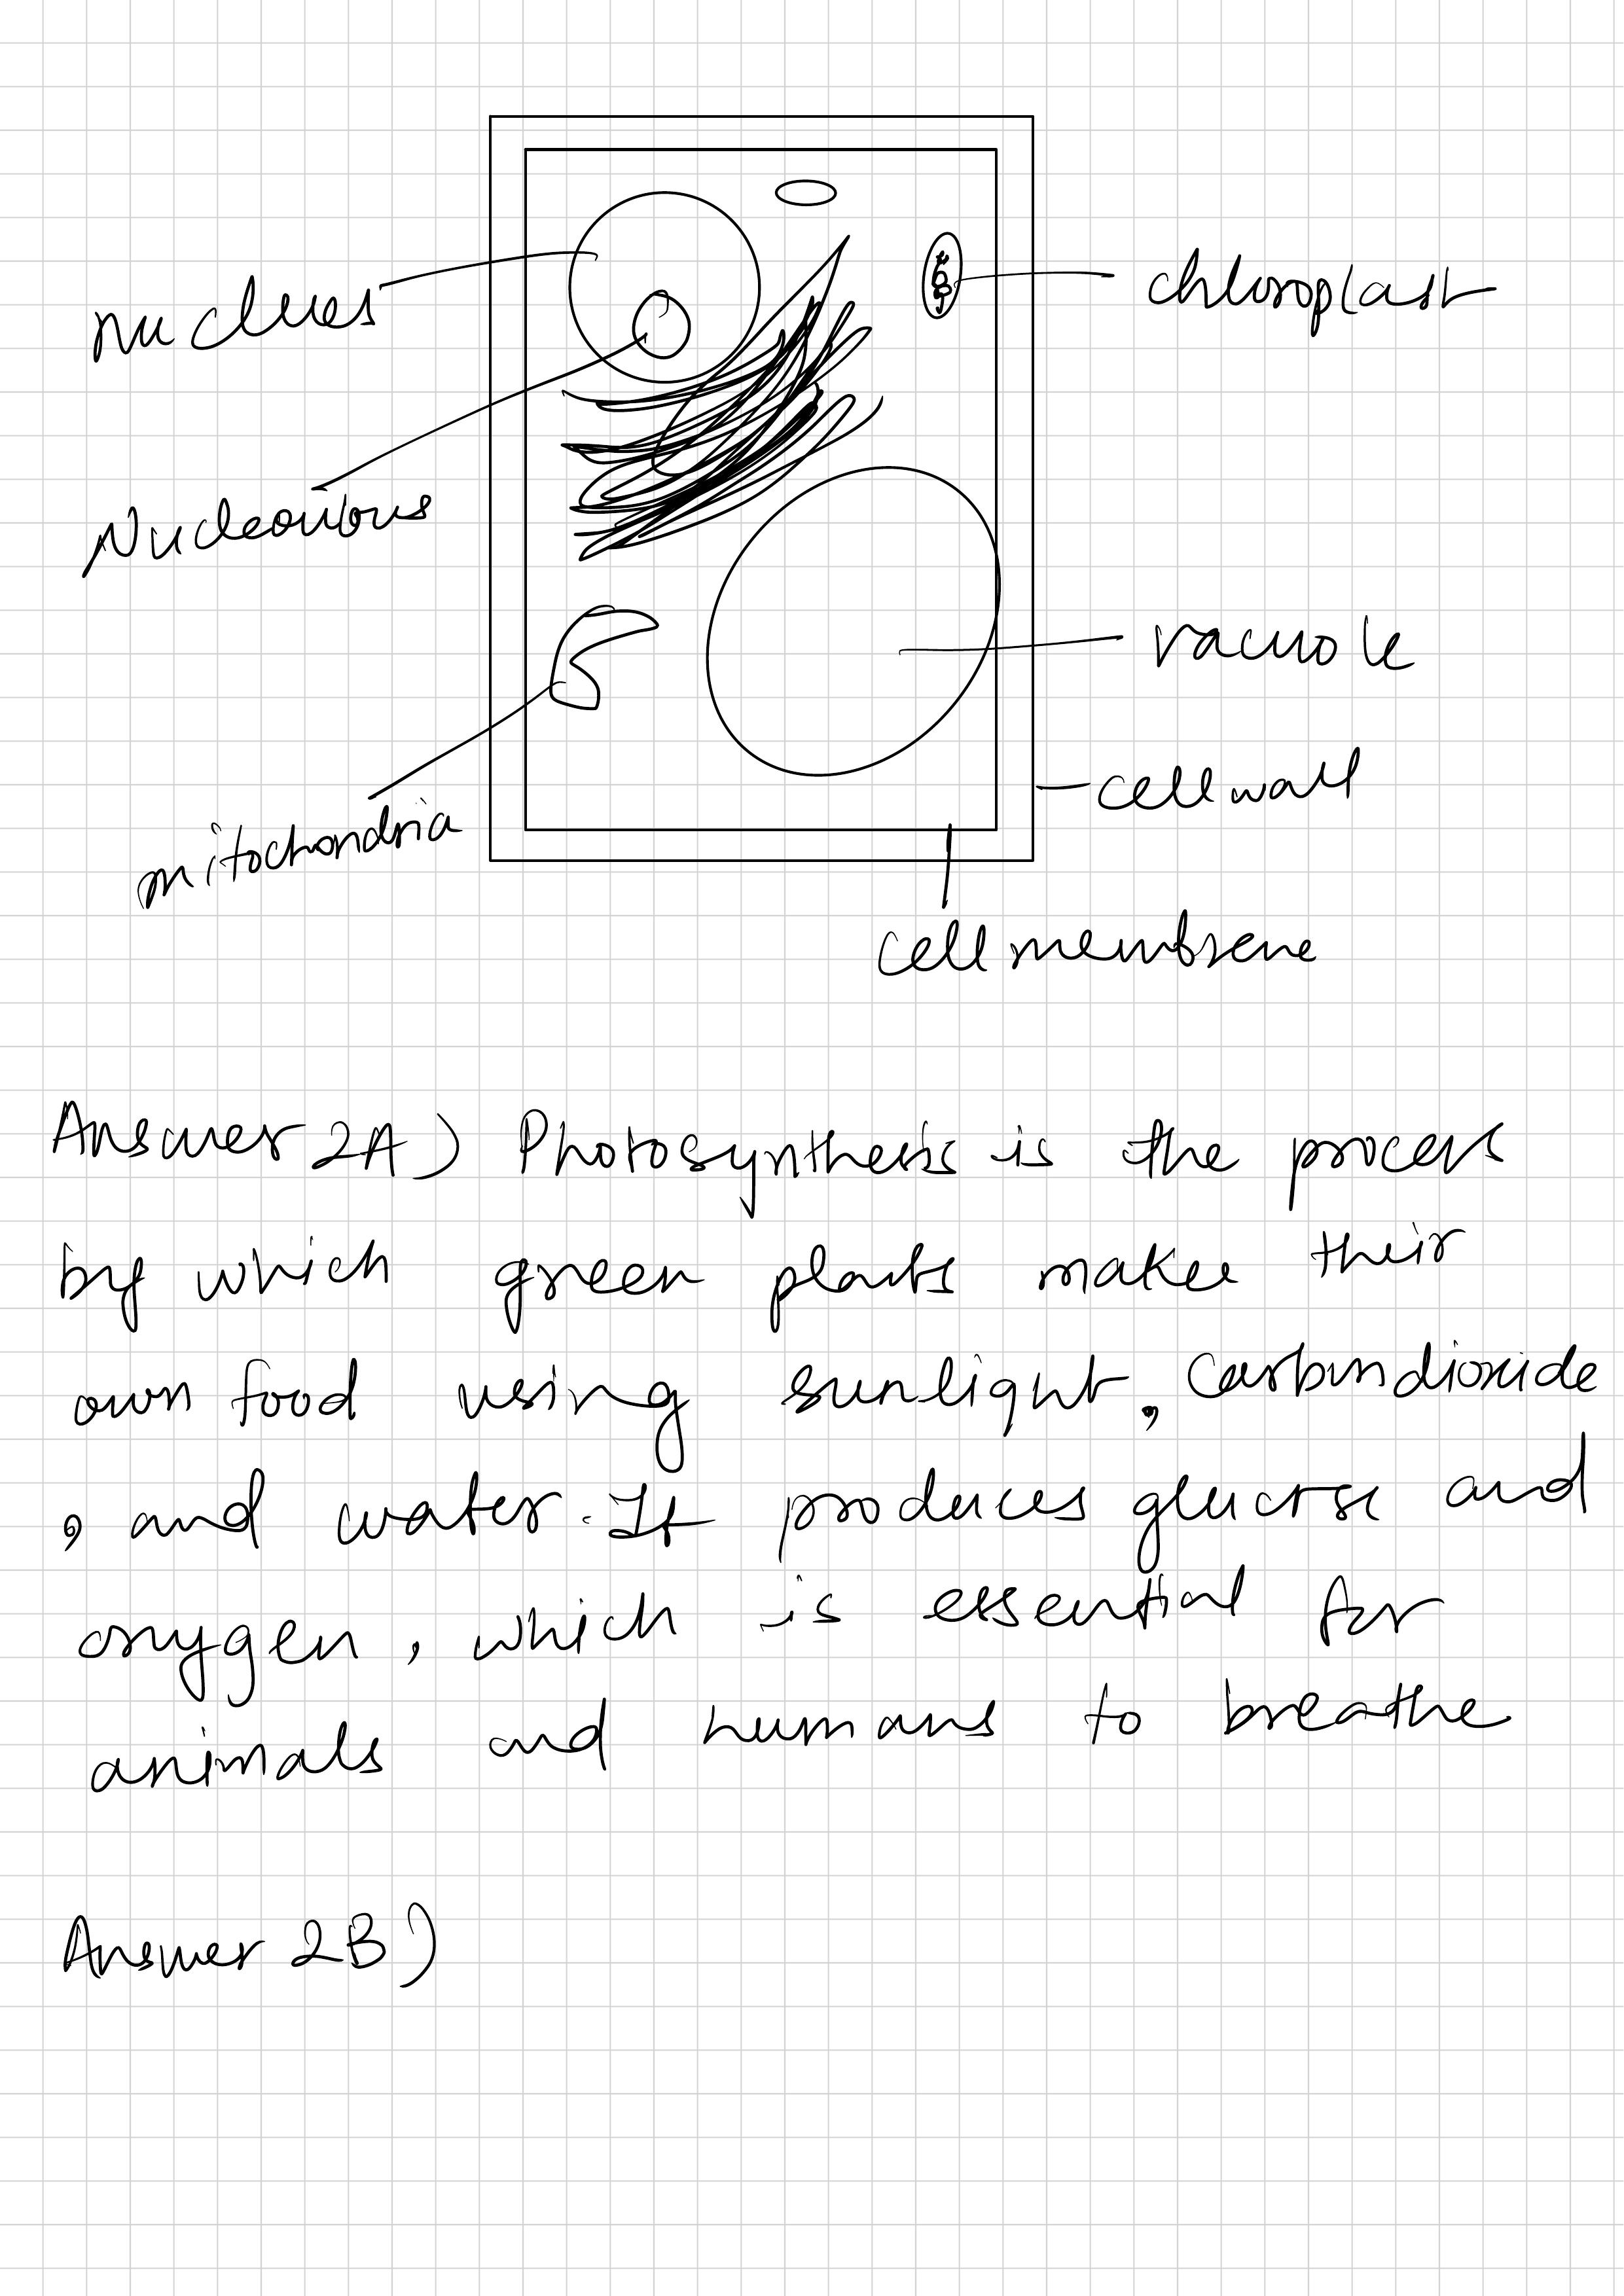 nuclues
chloroplast
Nucleoulous
vacuole
cell wall
mitochondria
cell membrene
Answer 2A) Photosynthesis is the process
by which green plants makes their
own food using sunlight, Carbondioxide
, and water. It produces glucose and
oxygen, which is essential for
animals and humans to breathe
Answer 2B)